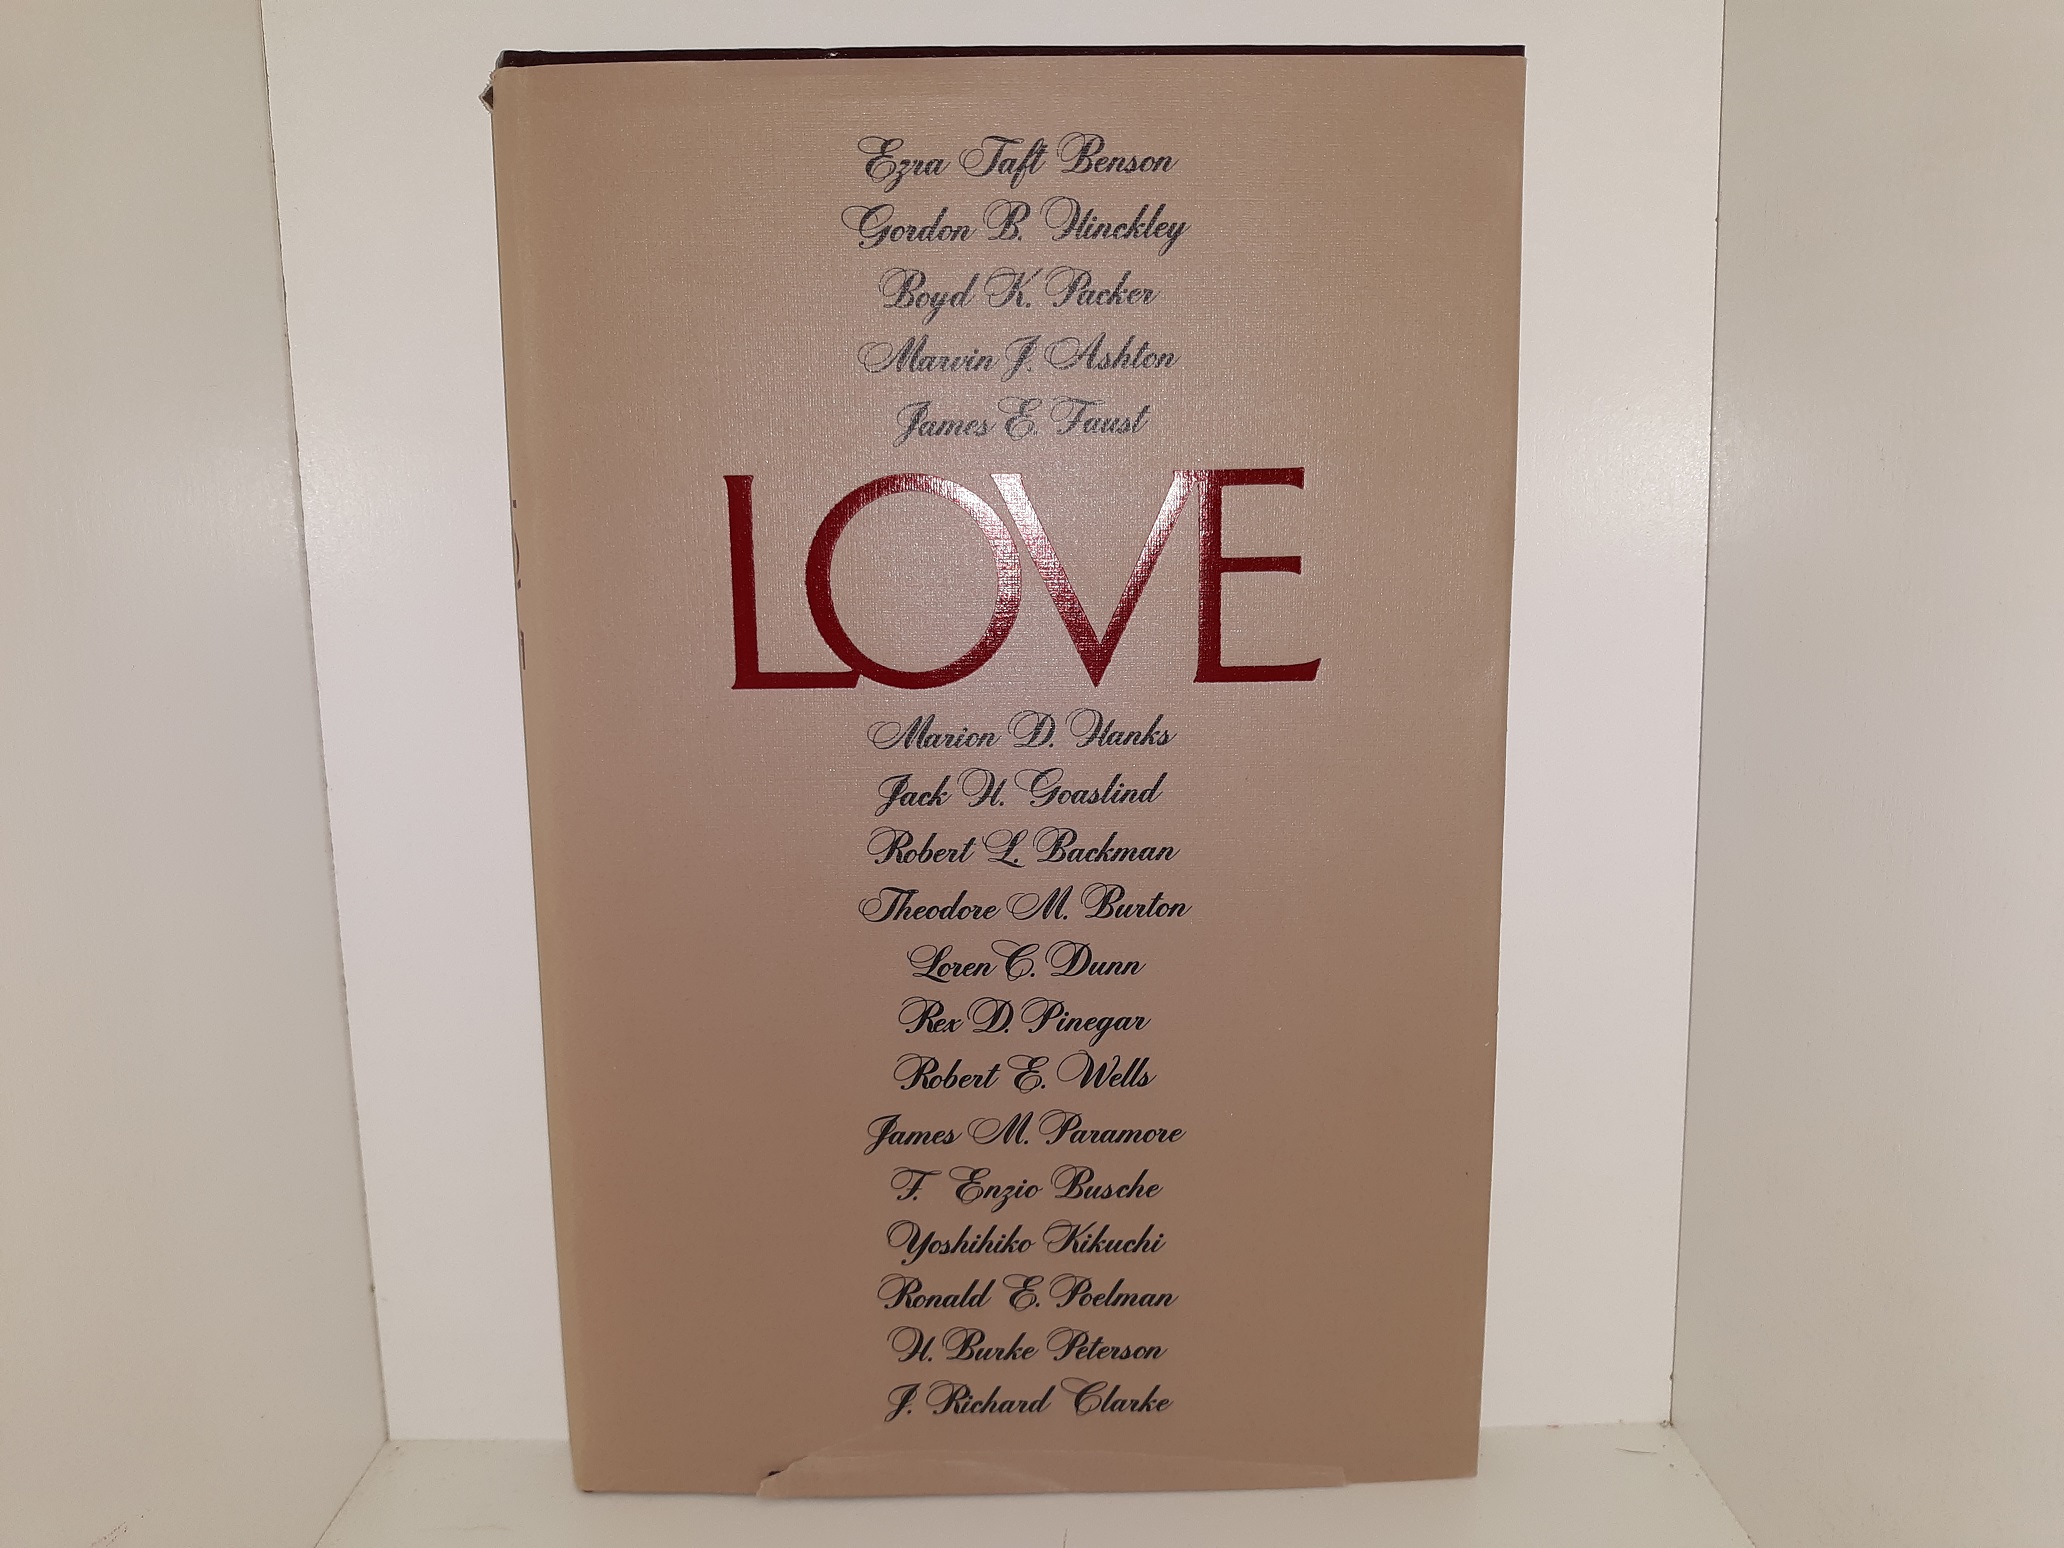 Ezra Taft Benson
Gordon B. Hinckley
Boyd K. Packer
Marvin J. Ashton
James E. Faust
LOVE
Marion D. Hanks
Jack H. Goaslind
Robert L. Backman
Theodore M. Burton
Loren C. Dunn
Rex D. Pinegar
Robert E. Wells
James M. Paramore
F. Enzio Busche
Yoshihiko Kikuchi
Ronald E. Poelman
H. Burke Peterson
J. Richard Clarke